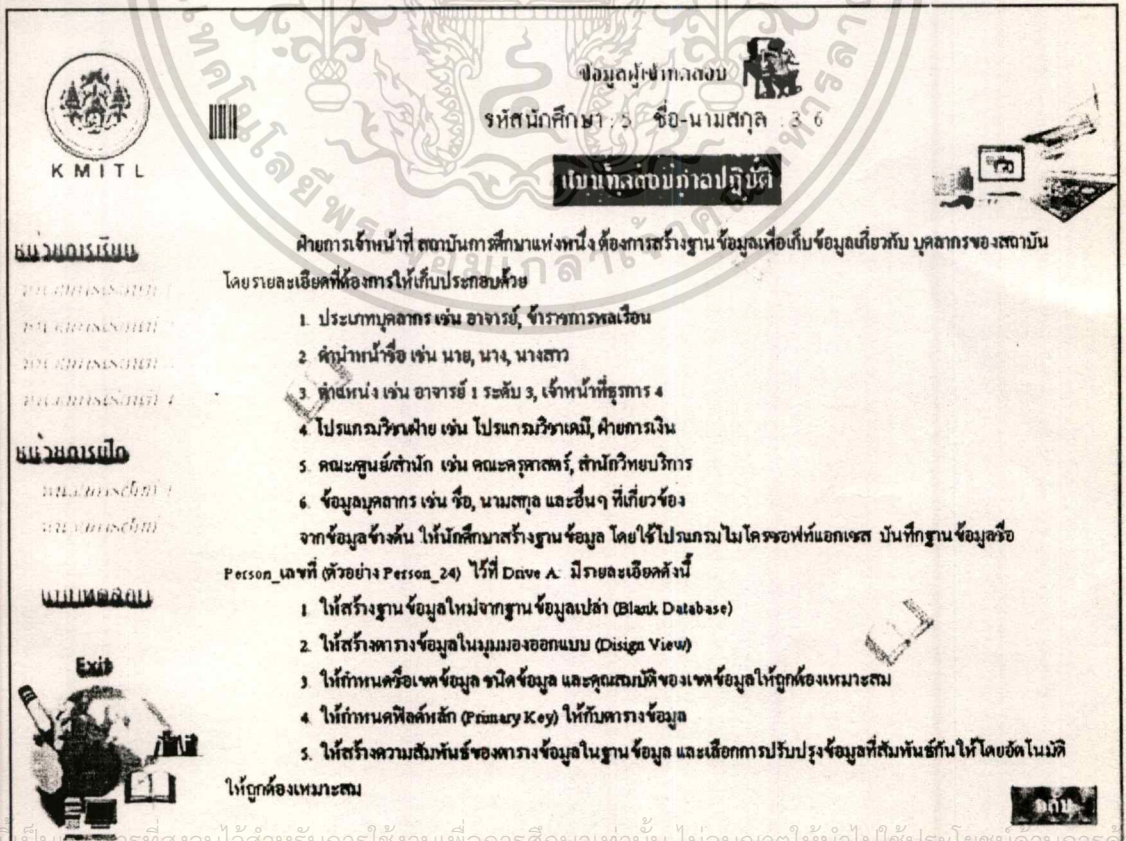 ข้อมูลผู้เข้าทดสอบ
รหัสนักศึกษา : 5 ชื่อ-นามสกุล : 3 6
KMITL
แบบทดสอบภาคปฏิบัติ
หน่วยการเรียน
ฝ่ายการเจ้าหน้าที่ สถาบันการศึกษาแห่งหนึ่ง ต้องการสร้างฐานข้อมูลเพื่อเก็บข้อมูลเกี่ยวกับ บุคลากรของสถาบัน
โดยรายละเอียดที่ต้องการให้เก็บประกอบด้วย
1. ประเภทบุคลากร เช่น อาจารย์, ข้าราชการพลเรือน
2. คำนำหน้าชื่อ เช่น นาย, นาง, นางสาว
3. ตำแหน่ง เช่น อาจารย์ 1 ระดับ 3, เจ้าหน้าที่ธุรการ 4
4. โปรแกรมวิชา/ฝ่าย เช่น โปรแกรมวิชาเคมี, ฝ่ายการเงิน
หน่วยการฝึก
5. คณะ/ศูนย์/สำนัก เช่น คณะครุศาสตร์, สำนักวิทยบริการ
6. ข้อมูลบุคลากร เช่น ชื่อ, นามสกุล และอื่นๆ ที่เกี่ยวข้อง
จากข้อมูลข้างต้น ให้นักศึกษาสร้างฐานข้อมูล โดยใช้โปรแกรมไมโครซอฟท์แอกเซส บันทึกฐานข้อมูลชื่อ
Person_เลขที่ (ตัวอย่าง Person_24) ไว้ที่ Drive A: มีรายละเอียดดังนี้
แบบทดสอบ
1. ให้สร้างฐานข้อมูลใหม่จากฐานข้อมูลเปล่า (Blank Database)
2. ให้สร้างตารางข้อมูลในมุมมองออกแบบ (Disign View)
Exit
3. ให้กำหนดชื่อเขตข้อมูล ชนิดข้อมูล และคุณสมบัติของเขตข้อมูลให้ถูกต้องเหมาะสม
4. ให้กำหนดฟิลด์หลัก (Primary Key) ให้กับตารางข้อมูล
5. ให้สร้างความสัมพันธ์ของตารางข้อมูลในฐานข้อมูล และเลือกการปรับปรุงข้อมูลที่สัมพันธ์กันให้โดยอัตโนมัติ
ให้ถูกต้องเหมาะสม
กลับ